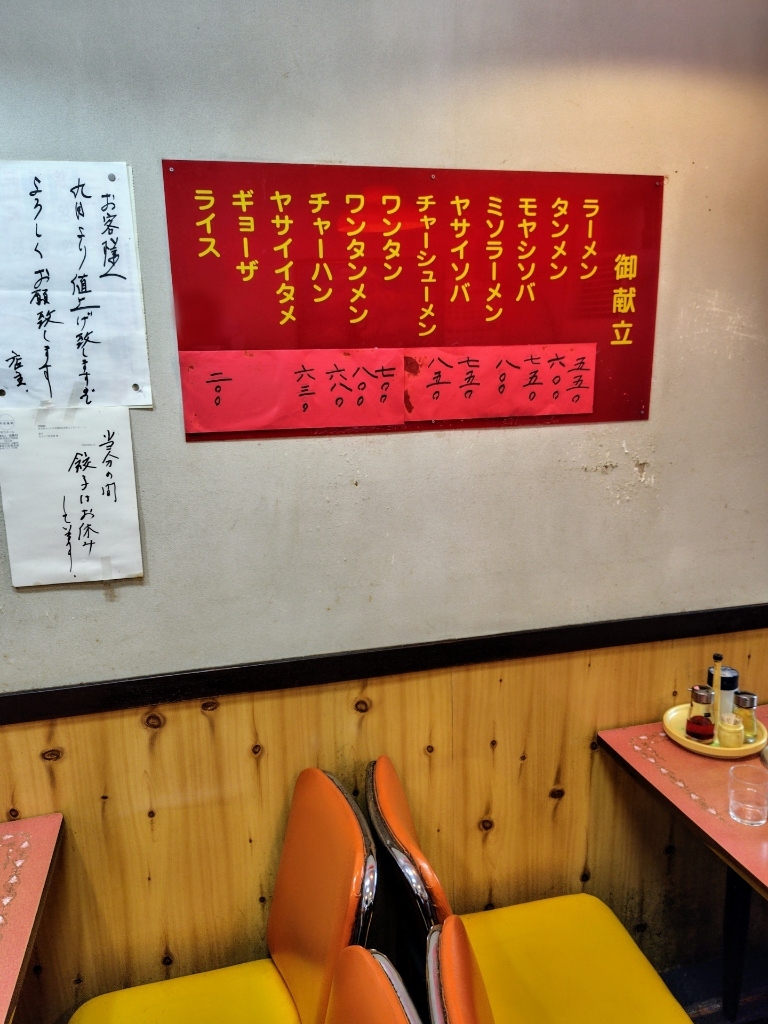 御献立
ラーメン 五五〇
タンメン 六〇〇
モヤシソバ 七五〇
ミソラーメン 八〇〇
ヤサイソバ 七五〇
チャーシューメン 八五〇
ワンタン 七〇〇
ワンタンメン 八〇〇
チャーハン 六八〇
ヤサイイタメ 六三〇
ギョーザ
ライス 二〇〇
お客様へ
九月より値上げ致しますので
よろしくお願致します
店主.
当分の間
餃子はお休み
しています.